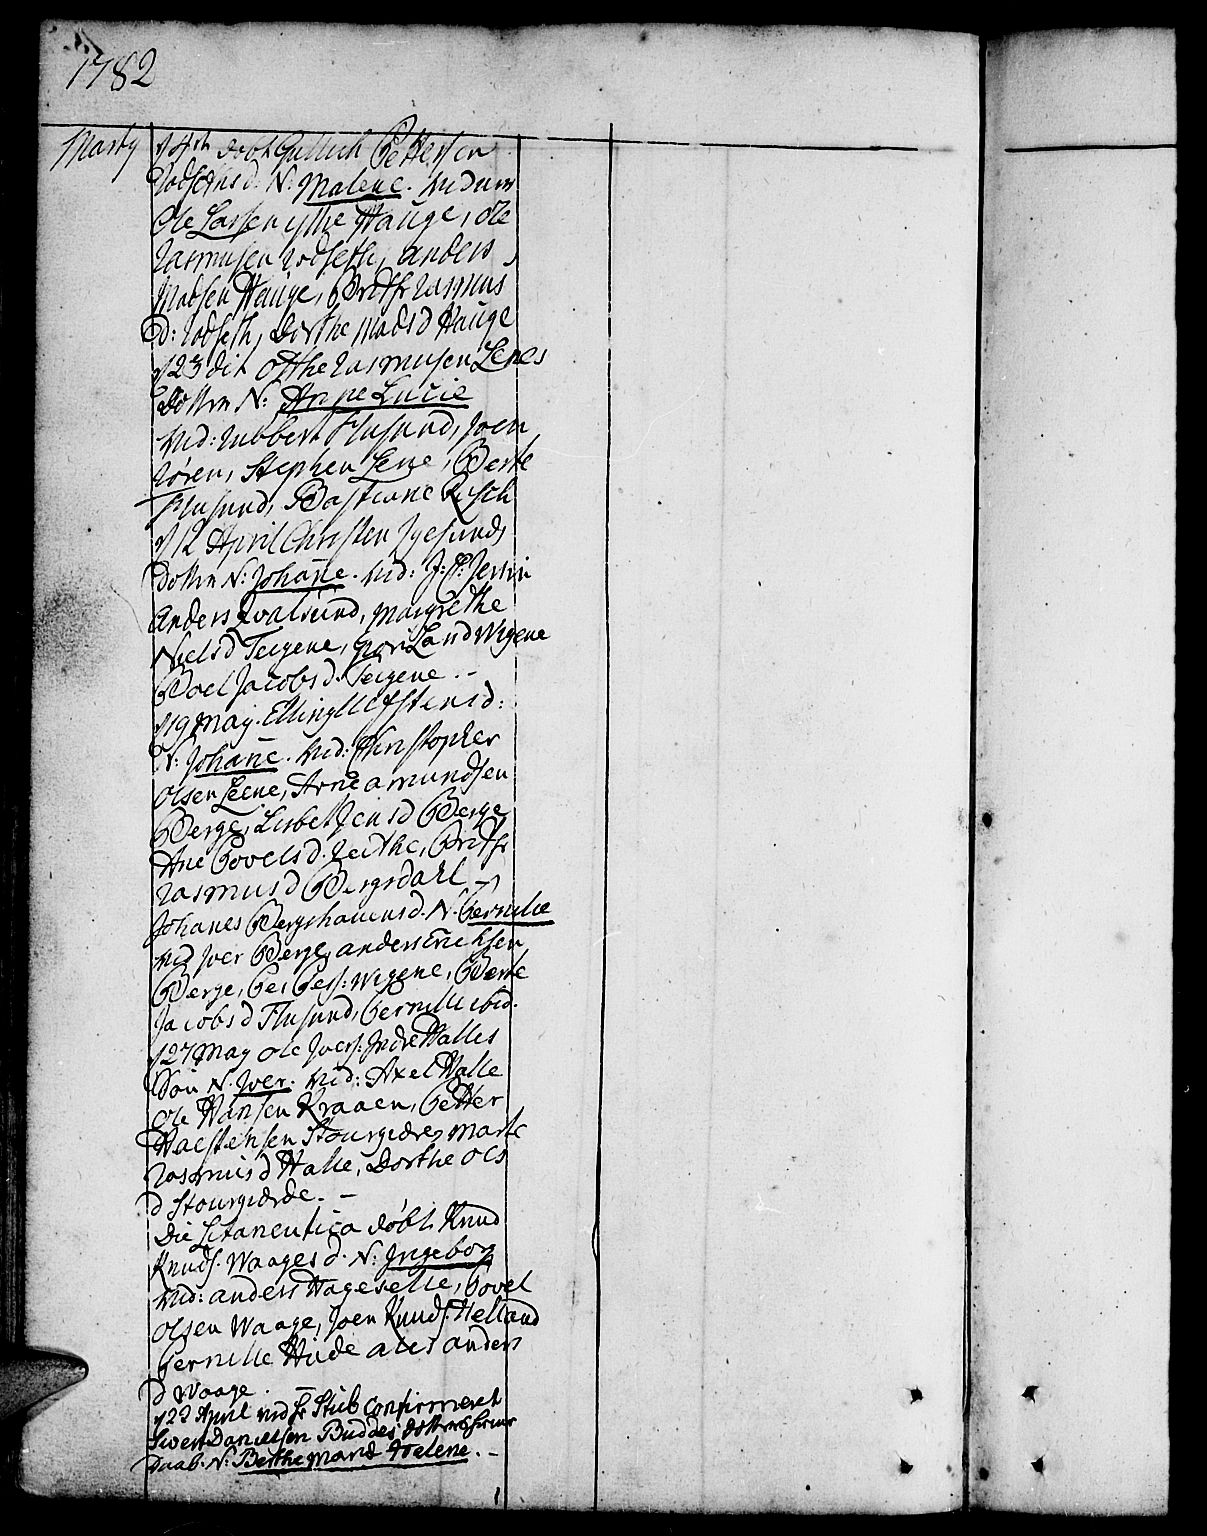 1782
Marty d 4de døbt Gullich Pettersen
Rødseths d. N: Malene. Vid: um
Ole Larsen ythe Hauge, Ole
Rasmusen Rødseth, Anders
Madsen Hauge, Brithe Rasmus
d: Rødseth, Dorthe Mads d Hauge
d 23 dit Otthe Rasmusen Lenes
Dotter N: Anne Lucie
Vid: Rubbert Flusund, Joen
Røren, Stephen Lene, Berte
Flusund, Bastiane Rusch
d 12 April Christen Igesunds
Dotter N: Johane. Vid: J: P: Jersin
Anders Qvalsund, Margrethe
Niels d Teigene, Land Wigene
Boel Jacobs d. Teigene. -
d 19 May. Elling Ulfstens d:
N: Johane. Vid: Christopher
Olsen Leene, Arne Amundsen
Berge, Lisbet Jens d Berge
Ane Povels d. Reithe, Brithe
Rasmus d Bergsdahl -
Johanes Bergshauens d. N. Pernille
Vid Iver Berge, Anders Erichsen
Berge, Per Pers: Wigene, Berte
Jacobs d Flusund, Pernille ibid.
d 27 May Ole Ivers: Indre Halles
Søn N. Iver. Vid: Axel Halle
Ole Hansen Kraaen, Petter
Haestensen Stourgierde, Marte
Rasmus d Halle, Dorthe Ols
d Stourgierde. -
Die Litaneutica døbt Knud
Knuds. Waages d. N: Ingeborg
Vid: Anders Hageselle, Povel
Olsen Waage, Joen Knuds. Helland
Pernille Hide Anders
d Waage. -
d 22 April ved Hr Stub Confirmeret
Swen Danielsen Buddes Dotters
Daab. N: Berthe Marie Helene. -